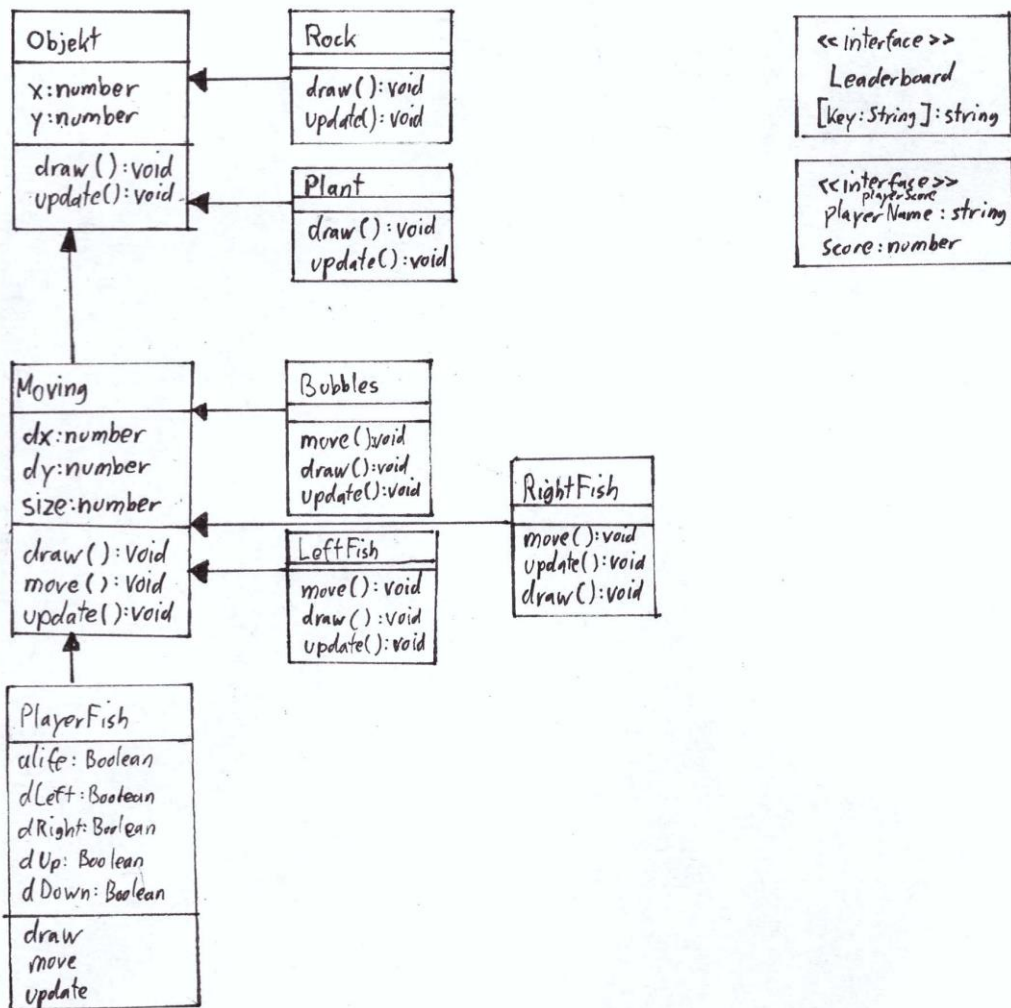 Objekt
x:number
y:number
draw():void
update():void
Rock
draw():void
update():void
Plant
draw():void
update():void
<<interface>>
Leaderboard
[key:String]:string
<<interfase>>
playerScore
playerName:string
score:number
Moving
dx:number
dy:number
size:number
draw():Void
move():Void
update():void
Bubbles
move():void
draw():void
update():void
LeftFish
move():void
draw():void
update():void
RightFish
move():void
update():void
draw():void
PlayerFish
alife:Boolean
dLeft:Boolean
dRight:Boolean
dUp:Boolean
dDown:Boolean
draw
move
update